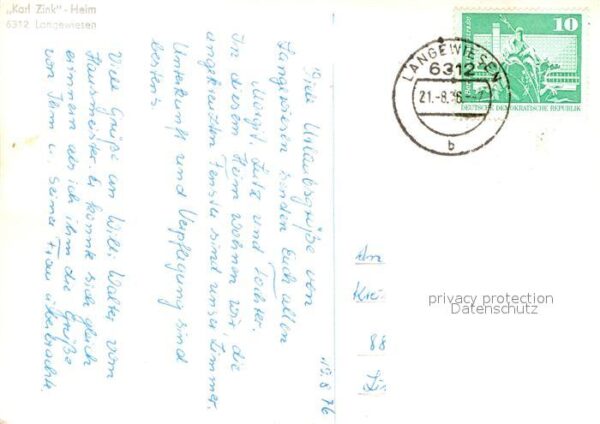 „Karl Zink"-Heim
6312 Langewiesen
LANGEWIESEN
6312
21.-8.76
b
10
NEPTUNBRUNNEN
DEUTSCHE DEMOKRATISCHE REPUBLIK
19.8.76
Viele Urlaubsgrüße von
Langewiesen senden Euch allen
Margit, Lutz und
In diesem Heim wohnen wir, die
angekreuzten Fenster sind unser Zimmer.
Unterkunft und Verpflegung sind
bestens.
Viele Grüße an Willi Walter vom
Hausmeister. Er konnte sich gleich
erinnern als ich ihm die Grüße
von Ihm u. seiner Frau überbrachte.
An
88
privacy protection
Datenschutz